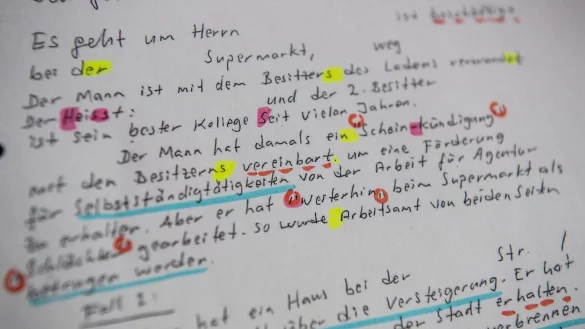 ist beschäftigt
Es geht um Herrn
bei der Supermarkt, weg
Der Mann ist mit dem Besitzers des Ladens verwandet
Der Heisst: und der 2. Besitzer
ist sein bester Kollege seit vielen Jahren.
Der Mann hat damals ein Scheinkündigung
mit den Besitzerns vereinbart. um eine Förderung
für Selbstständigtätigkeiten von der Arbeit für Agentur
zu erhalten. Aber er hat weiterhin beim Supermarkt als
gearbeitet. so wurde Arbeitsamt von beiden Seiten
betrogen worden.
Fall 2: Str.
hat ein Haus bei der
über die Versteigerung. Er hat
der Stadt erhalten.
verbrennen